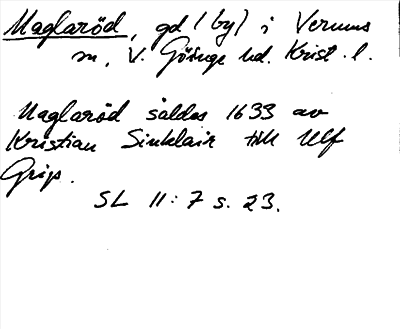 Maglaröd, gd (by) i Verums
sn, V. Göinge hd. Krist. l.
Maglaröd såldes 1633 av
Kristian Sinklair till Ulf
Grip.
SL 11:7 s. 23.